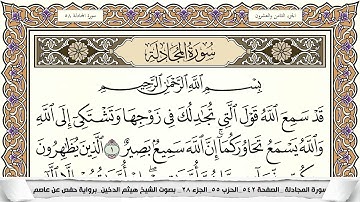 الجزء الثامن والعشرون
سورة المجادلة ٥٨
سُورَةُ المُجَادلَة
بِسْمِ اللَّهِ الرَّحْمَٰنِ الرَّحِيمِ
قَدْ سَمِعَ اللَّهُ قَوْلَ الَّتِي تُجَادِلُكَ فِي زَوْجِهَا وَتَشْتَكِي إِلَى اللَّهِ
وَاللَّهُ يَسْمَعُ تَحَاوُرَكُمَا إِنَّ اللَّهَ سَمِيعٌ بَصِيرٌ ١ الَّذِينَ يُظَٰهِرُونَ
سورة المجادلة _الصفحة ٥٤٢_الحزب ٥٥_الجزء ٢٨_ بصوت الشيخ هيثم الدخين_برواية حفص عن عاصم